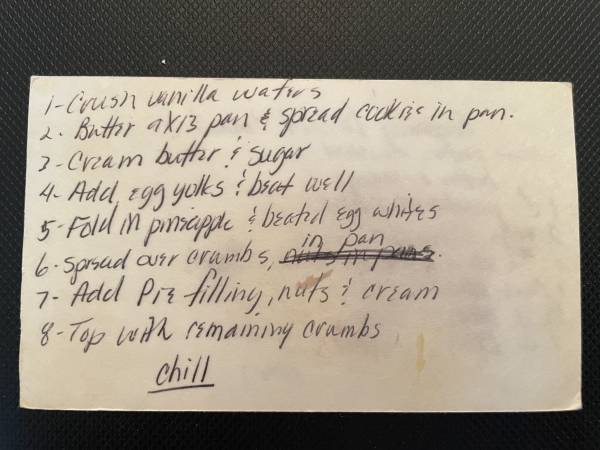 1-Crush vanilla wafers
2. Butter 9X13 pan & spread cookie in pan.
3-Cream butter & sugar
4- Add egg yolks & beat well
5-Fold in pineapple & beated egg whites
in pan
6-Spread over crumbs, nuts in pans.
7- Add Pie filling, nuts & cream
8-Top with remaining crumbs
chill